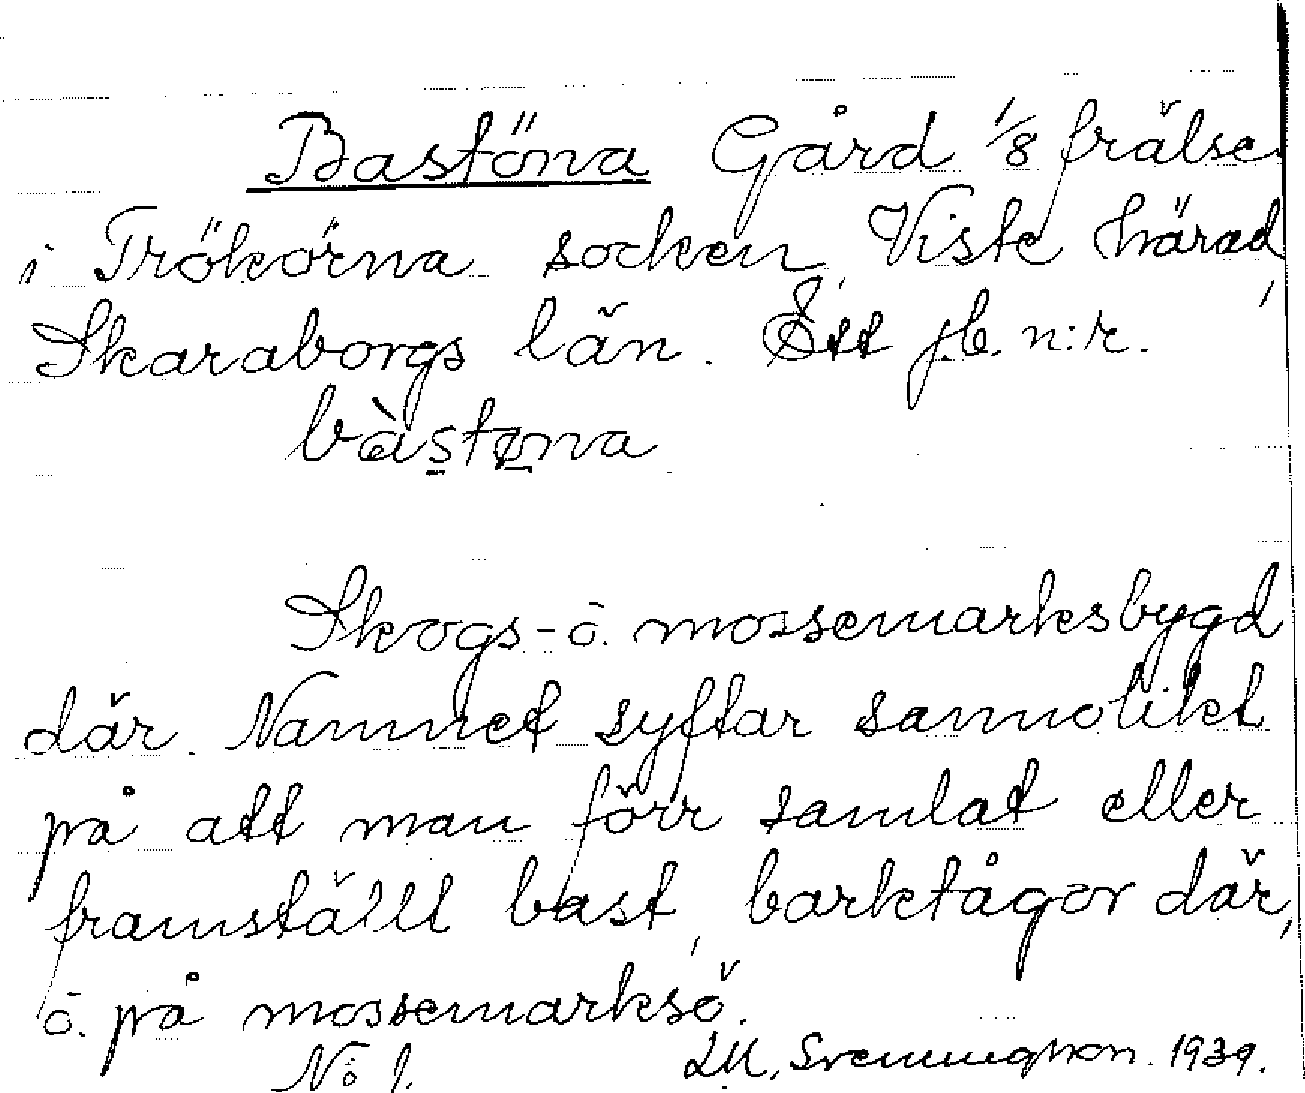 Bastöna Gård 1/8 frälse
i Trökörna socken, Viste härad,
Skaraborgs län. Ett jb. n:r.
bàstøna
Skogs- o. mossemarksbygd
där. Namnet syftar sannolikt
på att man förr samlat eller
framställt bast, barktågor där,
o. på mossemarksö.
No 1. Svenningson. 1939.